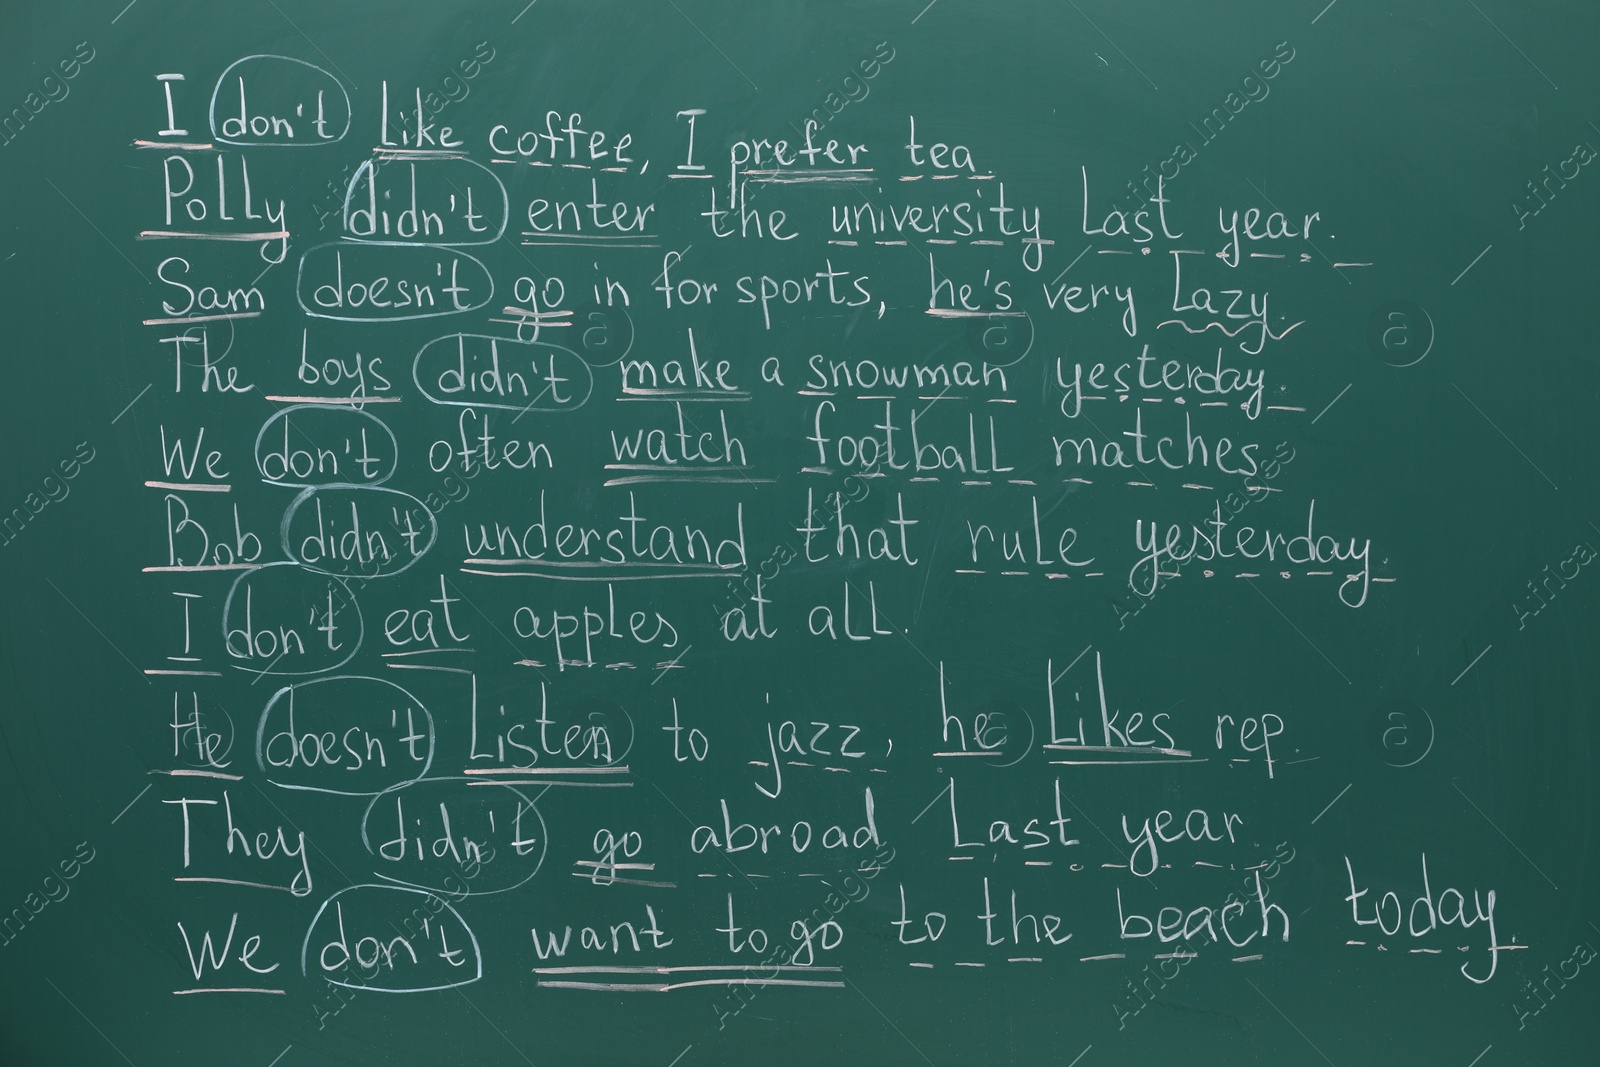 I don't like coffee, I prefer tea.
Polly didn't enter the university last year.
Sam doesn't go in for sports, he's very lazy.
The boys didn't make a snowman yesterday.
We don't often watch football matches.
Bob didn't understand that rule yesterday.
I don't eat apples at all.
He doesn't listen to jazz, he likes rep.
They didn't go abroad last year.
We don't want to go to the beach today.